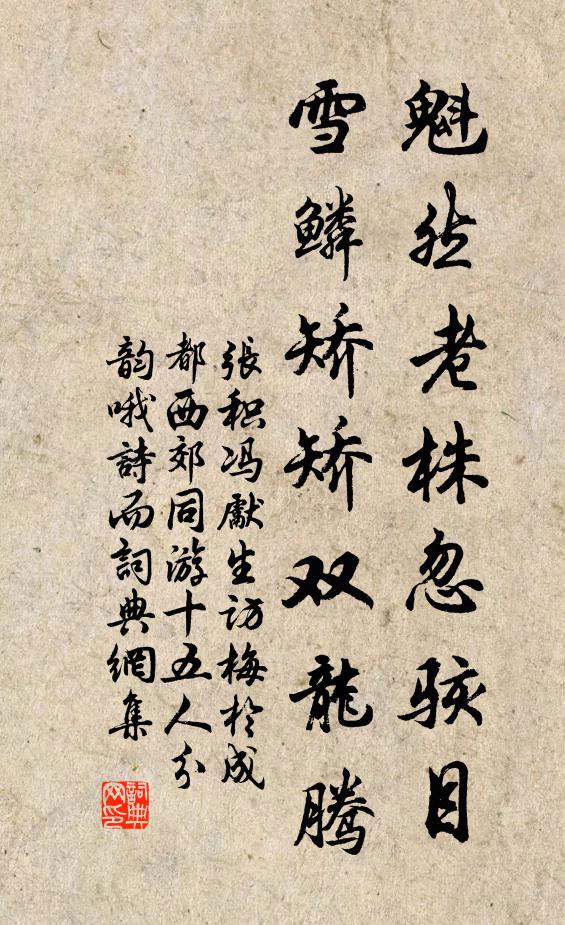 魁然老株忽骇目
雪鳞矫矫双龍腾
張积馮獻生访梅於成
都西郊同游十五人分
韵哦詩而詞典網集
詞典
网印